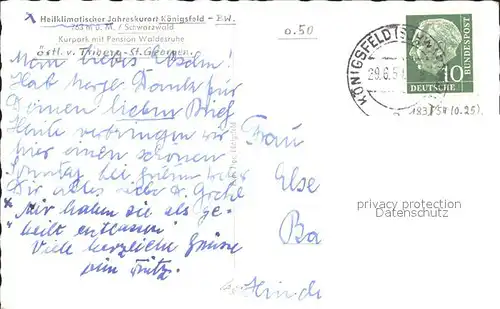 Heilklimatischer Jahreskurort Königsfeld - BW.
763 m ü. M. / Schwarzwald
Kurpark mit Pension Waldesruhe
östl. v. Triberg - St. Georgen.
0.50
KÖNIGSFELD (SCHWARZW
29.6.5
10
DEUTSCHE BUNDESPOST
1837 54 (0.25)
Mein liebes
Hab herzl. Dank für
Deinen lieben Brief
Heute verbringen wir
hier einen schönen
Sonntag bei
Dir alles
"Wir haben sie als ge-
heilt entlassen"
Viele herzliche Grüsse
Fritz.
Frau
Else
Ba
privacy protection
Datenschutz